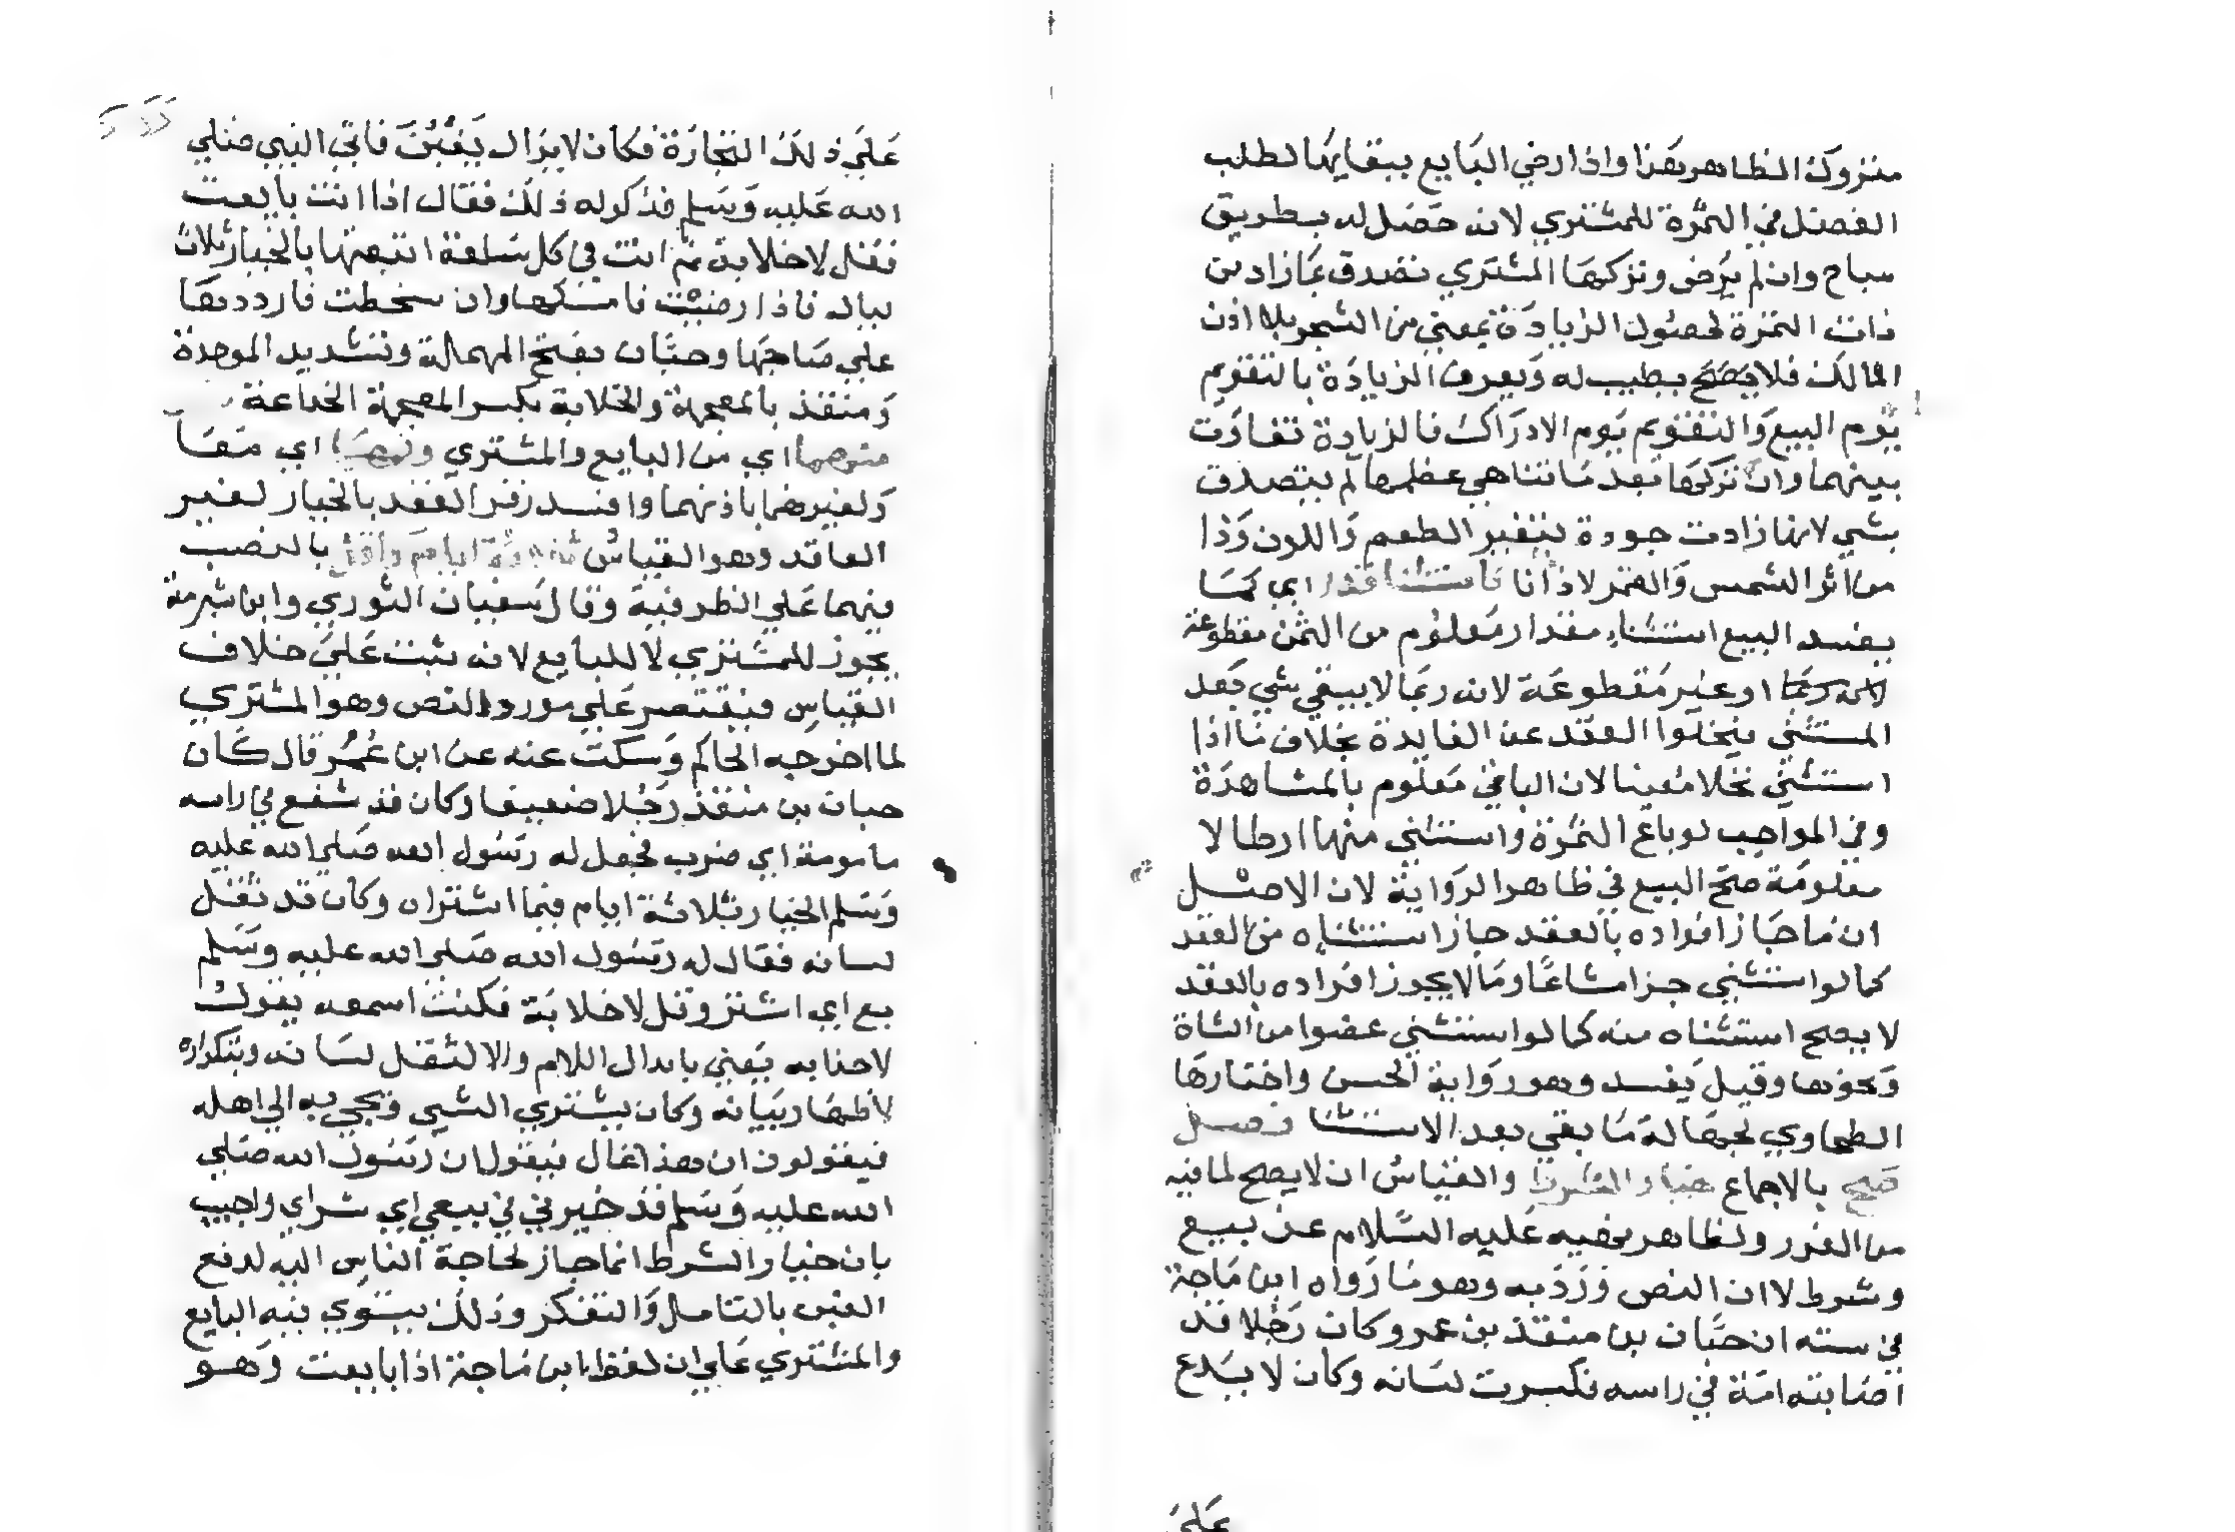 متروك الظاهر بهذا واذا رضي البايع ببقايها لطلب
الفضل في الثمرة للمشتري لانه حصل له بطريق
مباح وان لم يرض وتركها المشتري تصدق بما زاد من
ذات الثمرة لحصول الزيادة بمعنى من الشجر بلا اذن
المالك فلا يصح بطيب له ويعرف الزيادة بالتقويم
يوم البيع والتقويم يوم الادراك فالزيادة تفاوت
بينهما وان تركها بعد ما تناهي عظمها لم يتصدق
بشي لانها زادت جودة بتغير الطعم واللون وذا
من اثر الشمس والقمر لا ذاتا كاستثنا قدر اي كما
يفسد البيع استثناء مقدار معلوم من الثمن مقطوعة
لانه ربما او غير مقطوعة لانه ربما لا يبقي شي بعد
المستثني فيخلوا العقد عن الفايدة بخلاف ما اذا
استثني نخلا معينا لان الباقي معلوم بالمشاهدة
وفي المواجب لو باع الثمرة واستثني منها ارطالا
معلومة صح البيع في ظاهر الرواية لان الاصل
ان ما جاز افراده بالعقد جاز استثناه من العقد
كما لو استثني جزا مشاعا وما لا يجوز افراده بالعقد
لا يصح استثناه منه كما لو استثني عضوا من الشاة
ونحوها وقيل يفسد وهو رواية الحسن واختارها
الطحاوي لجهالة ما بقي بعد الاستثنا فصل
صح بالاجماع خيار الشرط والقياس ان لا يصح لما فيه
من الغرر ولظاهر نهيه عليه السلام عن بيع
وشرط لا ان النص ورد به وهو ما رواه ابن ماجة
في سننه ان حبان بن منقذ بن عمرو كان رجلا قد
اصابته امة في راسه فكسرت لسانه وكان لا يدع
علي
علي ذلك التجارة فكان لا يزال يغبن فاتي النبي صلي
الله عليه وسلم فذكر له ذلك فقال اذا انت بايعت
فقل لا خلابة ثم انت في كل سلعة ابتعتها بالخيار ثلاث
ليال فاذا رضيت فامسكها وان سخطت فارددها
علي صاحبها وحبان بفتح المهملة وتشديد الموحدة
ومنقذ بالمعجمة والخلابة بكسر المعجمة الخداعة
اي من البايع والمشتري ولهما اي معا
ولغيرهما باذنهما وافسد زفر العقد بالخيار لغير
العاقد وهو القياس ثلاثة ايام واقل بالنصب
فيهما علي الظرفية وقال سفيان الثوري وابن شبرمة
يجوز للمشتري لا للبايع لانه ثبت علي خلاف
القياس فيقتصر علي مورد النص وهو المشتري
لما اخرجه الحاكم وسكت عنه عن ابن عمر قال كان
حبان بن منقذ رجلا ضعيفا وكان قد شفع في راسه
مامومة اي ضرب فجعل له رسول الله صلي الله عليه
وسلم الخيار ثلاثة ايام فيما اشتراه وكان قد ثقل
لسانه فقال له رسول الله صلي الله عليه وسلم
بع اي اشتر وقل لا خلابة فكنت اسمعه يقول
لا خذابه يعني بابدال اللام والا لثقل لسانه وبتكراره
لاظهار بيانه وكان يشتري الشي ويجي به الي اهله
فيقولون ان هذا غال فيقول ان رسول الله صلي
الله عليه وسلم قد خيرني في بيعي اي شراي واجيب
بان خيار الشرط انما جاز لحاجة الناس اليه لدفع
الغبن بالتامل والتفكر وذلك يستوي فيه البايع
والمشتري علي ان لفظ ابن ماجة اذا بايعت وهو